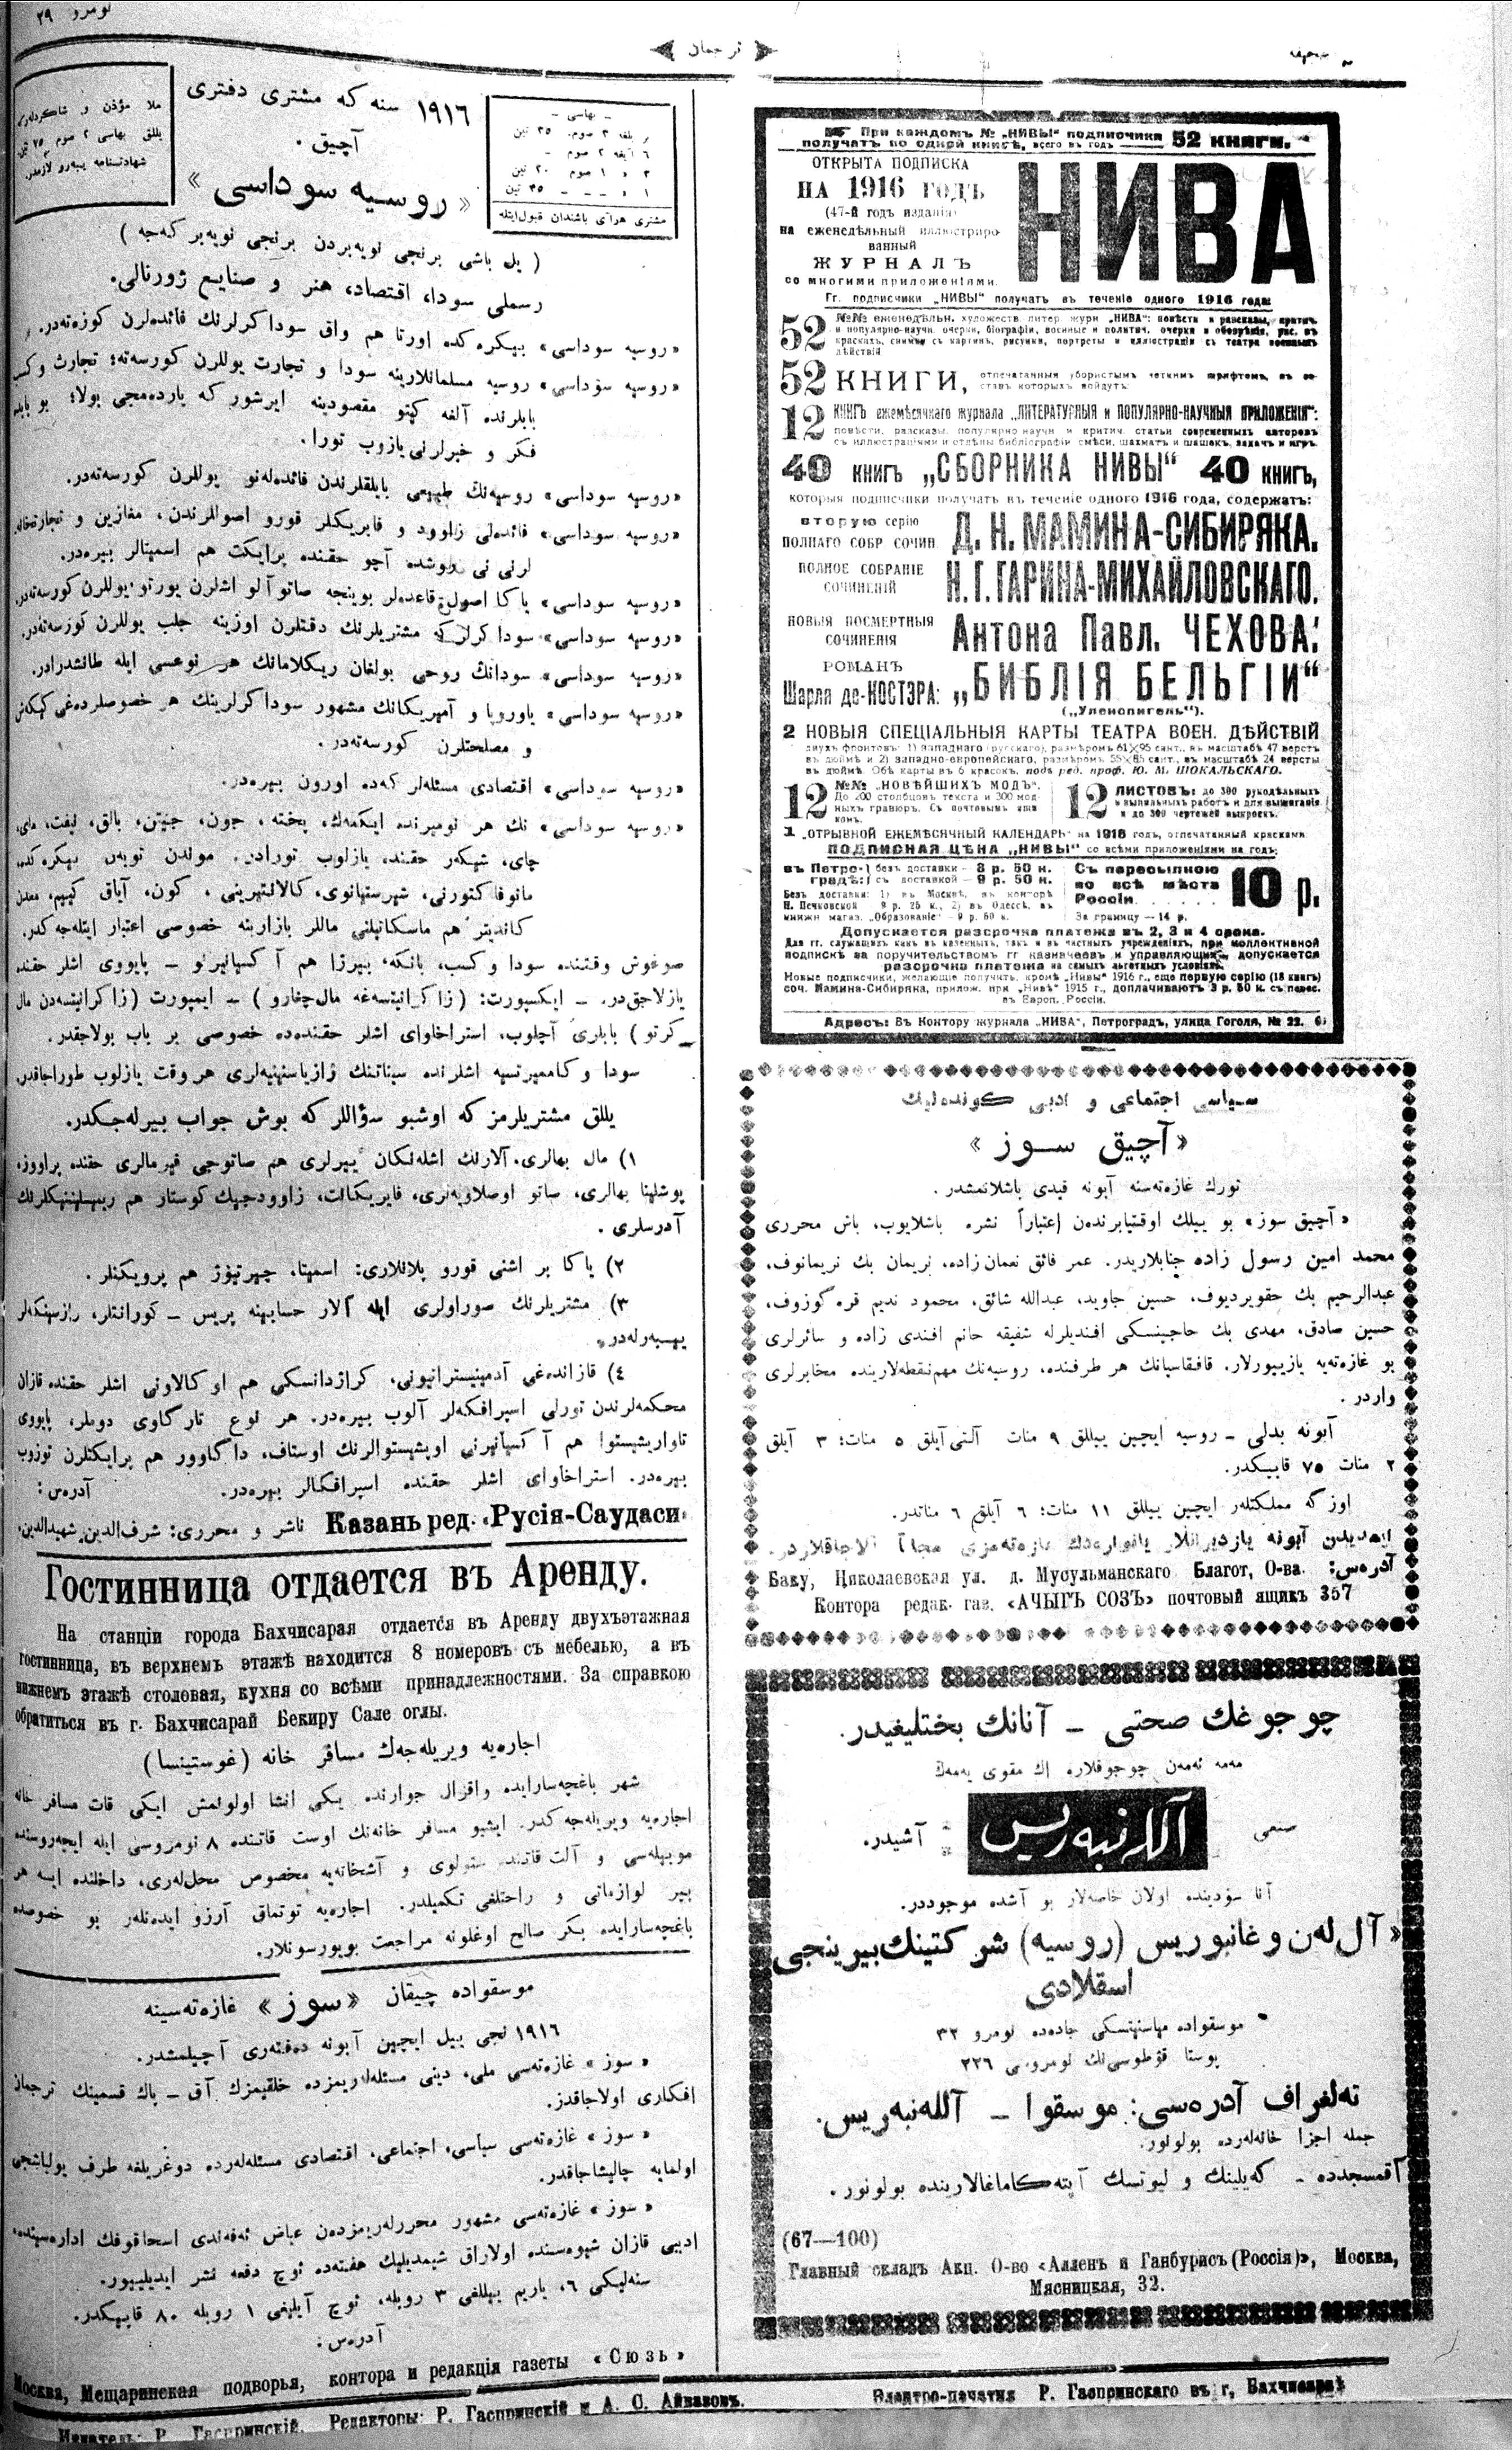 نومرو ٢٩
ترجمان
صحيفه
ملا مؤذن و شاكردلەرگە
يللق بهاسى ٢ صوم ٧٥ تين
شهادتنامه يبەرو لازمدر.
١٩١٦ سنه كه مشترى دفترى
آچيق.
« روسيه سوداسى »
– بهاسى –
بر يلغه ٣ صوم. ٣٥ تين
٦ آيغه ٢ صوم –
٣ و ١ صوم ٢٠ تين
١ و – – – ٣٥ تين
مشترى هر آى باشندان قبول ايتله
( يل باشى برنجى نويەبردن برنجى نويەبر كەجه )
رسملى سودا، اقتصاد، هنر و صنايع ژورنالى.
«روسيه سوداسى» بيكرەكده اورتا هم واق سوداكرلرنك فائدەلرن كوزەتەدر.
«روسيه سوداسى» روسيه مسلمانلارينه سودا و تجارت يوللرن كورسەتە؛ تجارت وكسب
بابلرنده آلغه كيتو مقصودينه ايرشور كه ياردەمجى بولا؛ بو بابده
فكر و خبرلرنى يازوب تورا.
«روسيه سوداسى» روسيەنك طبيعى بايلقلرندن فائدەلەنو يوللرن كورسەتەدر.
«روسيه سوداسى» فائدەلى زاوود و فابريكلر قورو اصوللرندن، مغازين و تجارتخانه
لرنى نى روشده آچو حقنده پرايكت هم اسميتالر بيرەدر.
«روسيه سوداسى» ياكا اصول، قاعدەلر بوينجه صاتو آلو اشلرن يورتو يوللرن كورسەتەدر.
«روسيه سوداسى» سوداكرلرگه مشتريلرنك دقتلرن اوزينه جلب يوللرن كورسەتەدر.
«روسيه سوداسى» سودانك روحى بولغان ريكلامانك هر نوعسى ايله طانشدرادر.
«روسيه سوداسى» ياوروپا و آميريكانك مشهور سوداكرلرينك هر خصوصلردەغى كيكەش
و مصلحتلرن كورسەتەدر.
«روسيه سوداسى» اقتصادى مسئلەلر كەده اورون بيرەدر.
«روسيه سوداسى» نك هر نوميرنده ايكمەك، پخته، جون، جيتن، بالق، نيفت، ماى،
چاى، شيكەر حقنده يازلوب تورادر. موندن توبەن بيكرەكده
مانوفاكتورنى، شيرستيانوى، كالانتيرينى، كون، آياق كييم، معدن
كانديتر هم ماسكاتيلنى ماللر بازارينه خصوصى اعتبار ايتلەجەكدر.
صوغوش وقتنده سودا و كسب، بانكه، بيرژا هم آكسيانيرنو – پايووى اشلر حقنده
يازلاجقدر. – ايكسپورت: (زاكرانيتسەغه مال چغارو) – ايمپورت (زاكرانيتسەدن مال
كرتو) بابلرى آچلوب، استراخاواى اشلر حقندەده خصوصى بر باب بولاجقدر.
سودا و كاممرتسيه اشلرنده سيناتنك ڤازياسنينيەلرى هر وقت يازلوب طوراجاقدر.
يللق مشتريلرمز كه اوشبو سؤاللر كه بوش جواب بيرلەجكدر.
١) مال بهالرى. آلارنك اشلەنكان ييرلرى هم صاتوجى فيرمالرى حقنده پراووز،
پوشلينا بهالرى، صاتو اوصلاويەلرى، فابريكانت، زاوودجيك كوستار هم ريميسلينيكلرنك
آدرسلرى.
٢) ياكا بر اشنى قورو پلانلارى: اسميتا، چيرتيوژ هم پرويكتلر.
٣) مشتريلرنك صوراولرى ايله آلار حسابينه پريس – كورانتلر، رازسينكەلر
يبەرلەدر.
٤) قازاندەغى آدمينيستراتيونى، كراژدانسكى هم اوكالاونى اشلر حقنده قازان
محكمەلرندن تورلى اسپرافكەلر آلوب بيرەدر. هر نوع تارگاوى دوملر، پايووى
تاواريشيستوا هم آكسيانيرنى اوبشيستوالرنك اوستاف، داگاوور هم پرايكتلرن توزوب
بيرەدر. استراخاواى اشلر حقنده اسپرافكالر بيرەدر. آدرەس:
Казань ред. «Русія-Саудаси» ناشر و محررى: شرف‌الدين شهيدالدين.
Гостинница отдается въ Аренду.
На станціи города Бахчисарая отдается въ Аренду двухъэтажная
гостинница, въ верхнемъ этажѣ находится 8 номеровъ съ мебелью, а въ
нижнемъ этажѣ столовая, кухня со всѣми принадлежностями. За справкою
обратиться въ г. Бахчисарай Бекиру Сале оглы.
اجارەيه ويريلەجەك مسافر خانه (غوستينسا)
شهر باغچەسارايده واقزال جوارنده يكى انشا اولونمش ايكى قات مسافر خانه
اجارەيه ويريلەجەكدر. ايشبو مسافر خانەنك اوست قاتنده ٨ نومروسى ايله ايچەروسنده
موبيلەسى و آلت قاتنده ستولوى و آشخانەيه مخصوص محل‌لەرى، داخلنده ايسه هر
بير لوازماتى و راحتلغى تكميلدر. اجارەيه توتماق آرزو ايدەنلەر بو خصوصده
باغچەسارايده بكر صالح اوغلونه مراجعت بويورسونلار.
موسقواده چيقان «سوز» غازەتەسينه
١٩١٦ نجى ييل ايچين آبونه دەفتەرى آچيلمشدر.
« سوز » غازەتەسى ملى، دينى مسئلەلريمزده خلقيمزك آق – پاك قسمينك ترجمان
افكارى اولاجاقدر.
« سوز » غازەتەسى سياسى، اجتماعى، اقتصادى مسئلەلەرده دوغريلغه طرف يولباشجى
اولمايه چاليشاجاقدر.
« سوز » غازەتەسى مشهور محررلەريمزدەن عياض ئەفەندى اسحاقوفك ادارەسينده،
ادبى قازان شيوەسنده اولاراق شيمديليك هفتەده ئوچ دفعه نشر ايديلييور.
سنەليكى ٦، ياريم ييللغى ٣ روبله، ئوچ آيليغى ١ روبله ٨٠ قاپيكدر.
آدرەس:
Москва, Мещаринская подворья, контора и редакція газеты «Сюзь»
При каждомъ № „НИВЫ“ подписчики
получатъ по одной книгѣ, всего въ годъ 52 книги.
ОТКРЫТА ПОДПИСКА
НА 1916 ГОДЪ
(47-й годъ изданія)
на еженедѣльный иллюстриро-
ванный
ЖУРНАЛЪ
со многими приложеніями.
НИВА
Гг. подписчики „НИВЫ“ получатъ въ теченіе одного 1916 года:
52 №№ еженедѣльн. художеств литер. журн „НИВА“: повѣсти и разсказы, критич.
и популярно-научн. очерки, біографіи, военные и политич. очерки и обозрѣнія, рис. въ
краскахъ, снимки съ картинъ, рисунки, портреты и иллюстраціи съ театра военныхъ
дѣйствій
52 КНИГИ, отпечатанныя убористымъ четкимъ шрифтомъ, въ со-
ставъ которыхъ войдутъ:
12 книгъ ежемѣсячнаго журнала „ЛИТЕРАТУРНЫЯ и ПОПУЛЯРНО-НАУЧНЫЯ ПРИЛОЖЕНІЯ“:
повѣсти, разсказы, популярно-научн и критич. статьи современныхъ авторовъ
съ иллюстраціями и отдѣлы библіографіи смѣси, шахматъ и шашекъ, задачъ и игръ
40 книгъ „СБОРНИКА НИВЫ“ 40 книгъ,
которыя подписчики получатъ въ теченіе одного 1916 года, содержатъ:
ВТОРУЮ серію
ПОЛНАГО СОБР. СОЧИН. Д. Н. МАМИНА-СИБИРЯКА.
ПОЛНОЕ СОБРАНІЕ
СОЧИНЕНІЙ Н. Г. ГАРИНА-МИХАЙЛОВСКАГО.
НОВЫЯ ПОСМЕРТНЫЯ
СОЧИНЕНІЯ Антона Павл. ЧЕХОВА:
РОМАНЪ
Шарля де-КОСТЭРА: „БИБЛІЯ БЕЛЬГІИ“
(„Уленспигель“).
2 НОВЫЯ СПЕЦІАЛЬНЫЯ КАРТЫ ТЕАТРА ВОЕН. ДѢЙСТВІЙ
двухъ фронтовъ: 1) западнаго (русскаго), размѣромъ 61×95 сант., въ масштабѣ 47 верстъ
въ дюймѣ и 2) западно-европейскаго, размѣромъ 55×85 сант., въ масштабѣ 24 версты
въ дюймѣ. Обѣ карты въ 6 красокъ. подъ ред. проф. Ю. М. ШОКАЛЬСКАГО.
12 №№ „НОВѢЙШИХЪ МОДЪ“.
До 200 столбцовъ текста и 300 мод-
ныхъ гравюръ. Съ почтовымъ ящи
комъ.
12 ЛИСТОВЪ: до 300 рукодѣльныхъ
и выпильныхъ работъ и для выжиганія
и до 300 чертежей выкроекъ.
1 „ОТРЫВНОЙ ЕЖЕМѢСЯЧНЫЙ КАЛЕНДАРЬ“ на 1916 годъ, отпечатанный красками
ПОДПИСНАЯ ЦѢНА „НИВЫ“ со всѣми приложеніями на годъ:
въ Петро- безъ доставки - 8 р. 50 к.
градѣ: съ доставкой - 9 р. 50 к.
Безъ доставки: 1) въ Москвѣ, въ конторѣ
Н. Печковской 9 р. 25 к., 2) въ Одессѣ, въ
книжн магаз. „Образованіе“ - 9 р. 50 к.
Съ пересылкою
во всѣ мѣста
Россіи 10 р.
За границу — 14 р.
Допускается разсрочка платежа въ 2, 3 и 4 срока.
Для гг. служащихъ какъ въ казенныхъ, такъ и въ частныхъ учрежденіяхъ, при коллективной
подпискѣ за поручительствомъ гг казначеевъ и управляющихъ, допускается
разсрочка платежа на самыхъ льготныхъ условіяхъ.
Новые подписчики, желающіе получить, кромѣ „Нивы“ 1916 г., еще первую серію (18 книгъ)
соч. Мамина-Сибиряка, прилож. при „Нивѣ“ 1915 г., доплачиваютъ 3 р. 50 к. съ перес.
въ Европ. Россіи.
Адресъ: Въ Контору журнала „НИВА“, Петроградъ, улица Гоголя, № 22.
سياسى اجتماعى و ادبى كوندەليك
« آچيق سوز »
تورك غازەتەسنه آبونه قيدى باشلانمشدر.
« آچيق سوز » بو ييلك اوقتيابرندەن اعتباراً نشره باشلايوب، باش محررى
محمد امين رسول زاده جنابلاريدر. عمر فائق نعمان زاده، نريمان بك نريمانوف،
عبدالرحيم بك حقويرديوف، حسين جاويد، عبدالله شائق، محمود نديم قره گوزوف،
حسين صادق، مهدى بك حاجينسكى افنديلرله شفيقه خانم افندى زاده و سائرلرى
بو غازەتەيه يازييورلار. قافقاسيانك هر طرفنده، روسيەنك مهم نقطەلارينده مخابرلرى
واردر.
آبونه بدلى – روسيه ايچين ييللق ٩ منات آلتى آيلق ٥ منات؛ ٣ آيلق
٢ منات ٧٥ قاپيكدر.
اوزگه مملكتلەر ايچين ييللق ١١ منات؛ ٦ آيلق ٦ مناتدر.
ايمديدن آبونه يازديرانلار يانوارەدك غازەتەمزى مجاناً آلاجاقلاردر.
آدرەس: Баку, Николаевская ул. д. Мусульманскаго Благот, О-ва.
Контора редак. газ. «АЧЫГЪ СОЗЪ» почтовый ящикъ 357
چوجوغك صحتى – آنانك بختليغيدر.
مەمه ئەمەن چوجوقلاره اك مقوى يەمەك
صنعى آللەنبەريس آشيدر.
آنا سؤدينده اولان خاصەلار بو آشده موجوددر.
« آل لەن و غانبوريس (روسيه) شركتينك بيرينجى
اسقلادى
موسقواده مياسنيتسكى جادەده نومرو ٣٢
پوستا قوطوسى‌نك نومروسى ٢٢٦
تەلغراف آدرەسى: موسقوا – آللەنبەريس.
جمله اجزا خانەلەرده بولونور.
آقمسجدده – كەيلينك و ليوتسك آپتەكاماغالارينده بولونور.
(67—100)
Главный складъ Акц. О-во «Алленъ и Ганбурисъ (Россія)», Москва,
Мясницкая, 32.
Издатель: Р. Гаспринскій. Редакторы: Р. Гаспринскій и А. С. Айвазовъ.
Электро-печатня Р. Гаспринскаго въ г, Бахчисараѣ